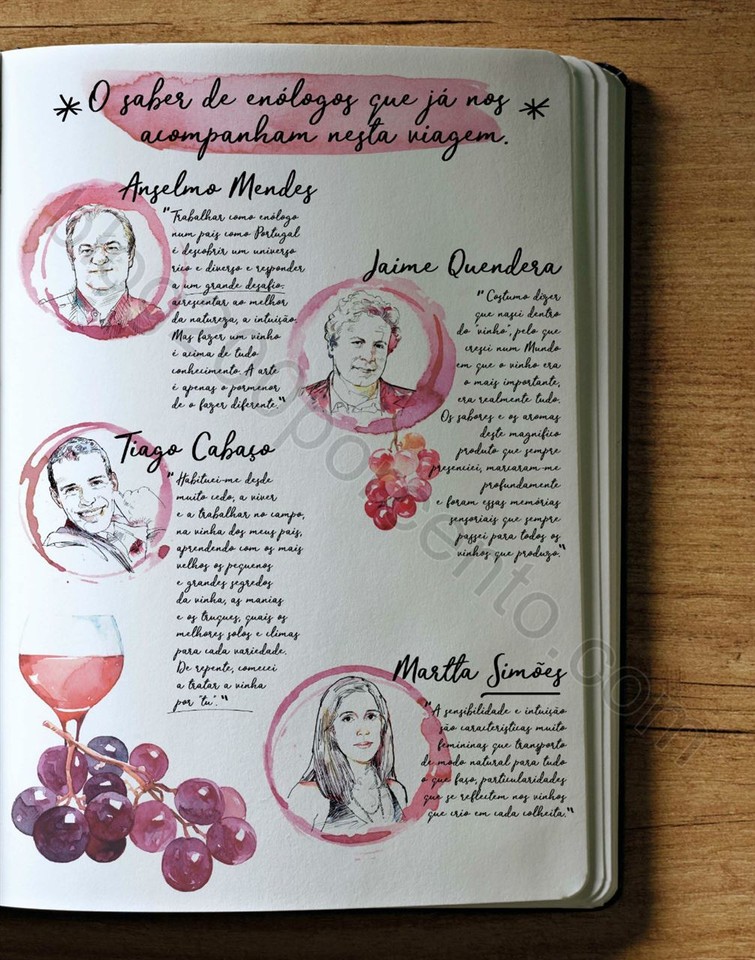 * O saber de enólogos que já nos *
acompanham nesta viagem.
Anselmo Mendes
"Trabalhar como enólogo
num país como Portugal
é descobrir um universo
rico e diverso e responder
a um grande desafio:
acrescentar ao melhor
da natureza, a intuição.
Mas fazer um vinho
é acima de tudo
conhecimento. A arte
é apenas o pormenor
de o fazer diferente."
Jaime Quendera
"Costumo dizer
que nasci dentro
do "vinho", pelo que
cresci num Mundo
em que o vinho era
o mais importante,
era realmente tudo.
Os sabores e os aromas
deste magnífico
produto que sempre
presenciei, marcaram-me
profundamente
e foram essas memórias
sensoriais que sempre
passei para todos os
vinhos que produzo."
Tiago Cabaço
"Habituei-me desde
muito cedo, a viver
e a trabalhar no campo,
na vinha dos meus pais,
aprendendo com os mais
velhos os pequenos
e grandes segredos
da vinha, as manias
e os truques, quais os
melhores solos e climas
para cada variedade.
De repente, comecei
a tratar a vinha
por "tu"."
Martta Simões
"A sensibilidade e intuição
são características muito
femininas que transporto
de modo natural para tudo
o que faço, particularidades
que se reflectem nos vinhos
que crio em cada colheita."